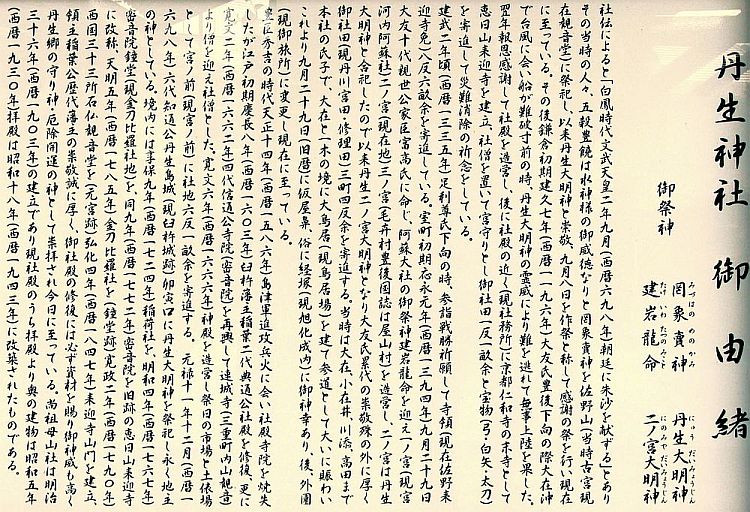 丹生神社 御由緒
御祭神
罔象賣神 丹生大明神
みづはのめのかみ にゅうだいみょうじん
建岩龍命 二ノ宮大明神
たけいわたつのみこと にのみやだいみょうじん
社伝によると「白鳳時代文武天皇二年九月(西暦六九八年)朝廷に朱沙を献ずる」とあり
その当時の人々、五穀豊饒は水神様の御威徳なりと罔象賣神を佐野山(当時古宮現
在観音堂)に祭祀し、以来丹生大明神と崇敬、九月八日を作祭と称して感謝の祭を行い現在
に至っている。その後鎌倉初期建久七年(西暦一一九六年)大友氏豊後下向の際大在沖
で台風に会い船が難破寸前の時、丹生大明神の霊威により難を逃れて毎事上陸を果した。
翌年報恩感謝して社殿を造営し、後に社殿の近く(現社務所)に京都仁和寺の末寺として
恵日山来迎寺を建立、社僧を置いて宮守りとし御社田一反一畝余と宝物(弓・白矢・太刀)
を寄進して災難消除の祈念をしている。
建武二年頃(西暦一三三五年)足利尊氏下向の時、参詣戦勝祈願して寺領(現在佐野来
迎寺免)八反六畝余を寄進している。室町初期応永元年(西暦一三九四年)九月二十九日
大友十代親世公家臣富高氏に命じ、阿蘇大社の御祭神建岩龍命を迎え一ノ宮(現宮
河内阿蘇社)二ノ宮(現在地)三ノ宮(毛井村豊後国誌は屋山村)を造営し、二ノ宮は丹生
大明神と合祀したので以来丹生二ノ宮大明神となり大友氏累代の崇敬殊の外に厚く
御社田現丹川宮田・修理田三町四反余を寄進する。当時は大在、小在井、川添、高田まで
本社の氏子で、大在と一木の境に大鳥居(現鳥居場)を建て参道として大いに賑わい
これより九月二十九日(旧暦)に仮屋裊、俗に経塚(現旭化成内)に御神幸あり、後、外園
(現御旅所)に変更し現在に至っている。
豊臣秀吉の時代天正十四年(西暦一五八六年)島津軍進攻兵火に会い社殿寺院を焼失
したが江戸初期慶長八年(西暦一六〇三年)臼杵藩主稲葉二代典通公社殿を修復、更に
寛文二年(西暦一六六二年)四代信通公寺院(密音院)を再興して連城寺(三重町内山観音)
より僧を迎え社僧とした。寛文六年(西暦一六六六年)神殿を造営し祭日の市場と土俵場
として宮ノ前(現宮ノ前)に社地六反一畝余を寄進する。 元禄十一年十二月(西暦一
六九八年)六代知通公丹生島城(現臼杵城跡)卯寅口に丹生大明神を祭祀し永く地主
の神としている。境内には享保九年(西暦一七二四年)稲荷社を、明和四年(西暦一七六七年)
密音院を鐘撞堂(現金刀比羅社地)を、同九年(西暦一七七二年)密音院を旧跡の恵日山来迎寺
に改称、天明五年(西暦一七八五年)金刀比羅社を(鐘堂跡)寛政二年(西暦一七九〇年)
西国三十三所石仏観音堂を(元宮跡)弘化四年(西暦一八四七年)来迎寺山門を建立、
領主稲葉公歴代藩主の崇敬誠に厚く、御社殿の修復には必ず資材を賜り御神威も高く
丹生郷の守り神・厄除開運の神として崇拝され今日に至っている。尚祖母山社は明治
三十六年(西暦一九〇三年)の建立であり現社殿のうち拝殿より奥の建物は昭和五年
(西暦一九三〇年)拝殿は昭和十八年(西暦一九四三年)に改築されたものである。